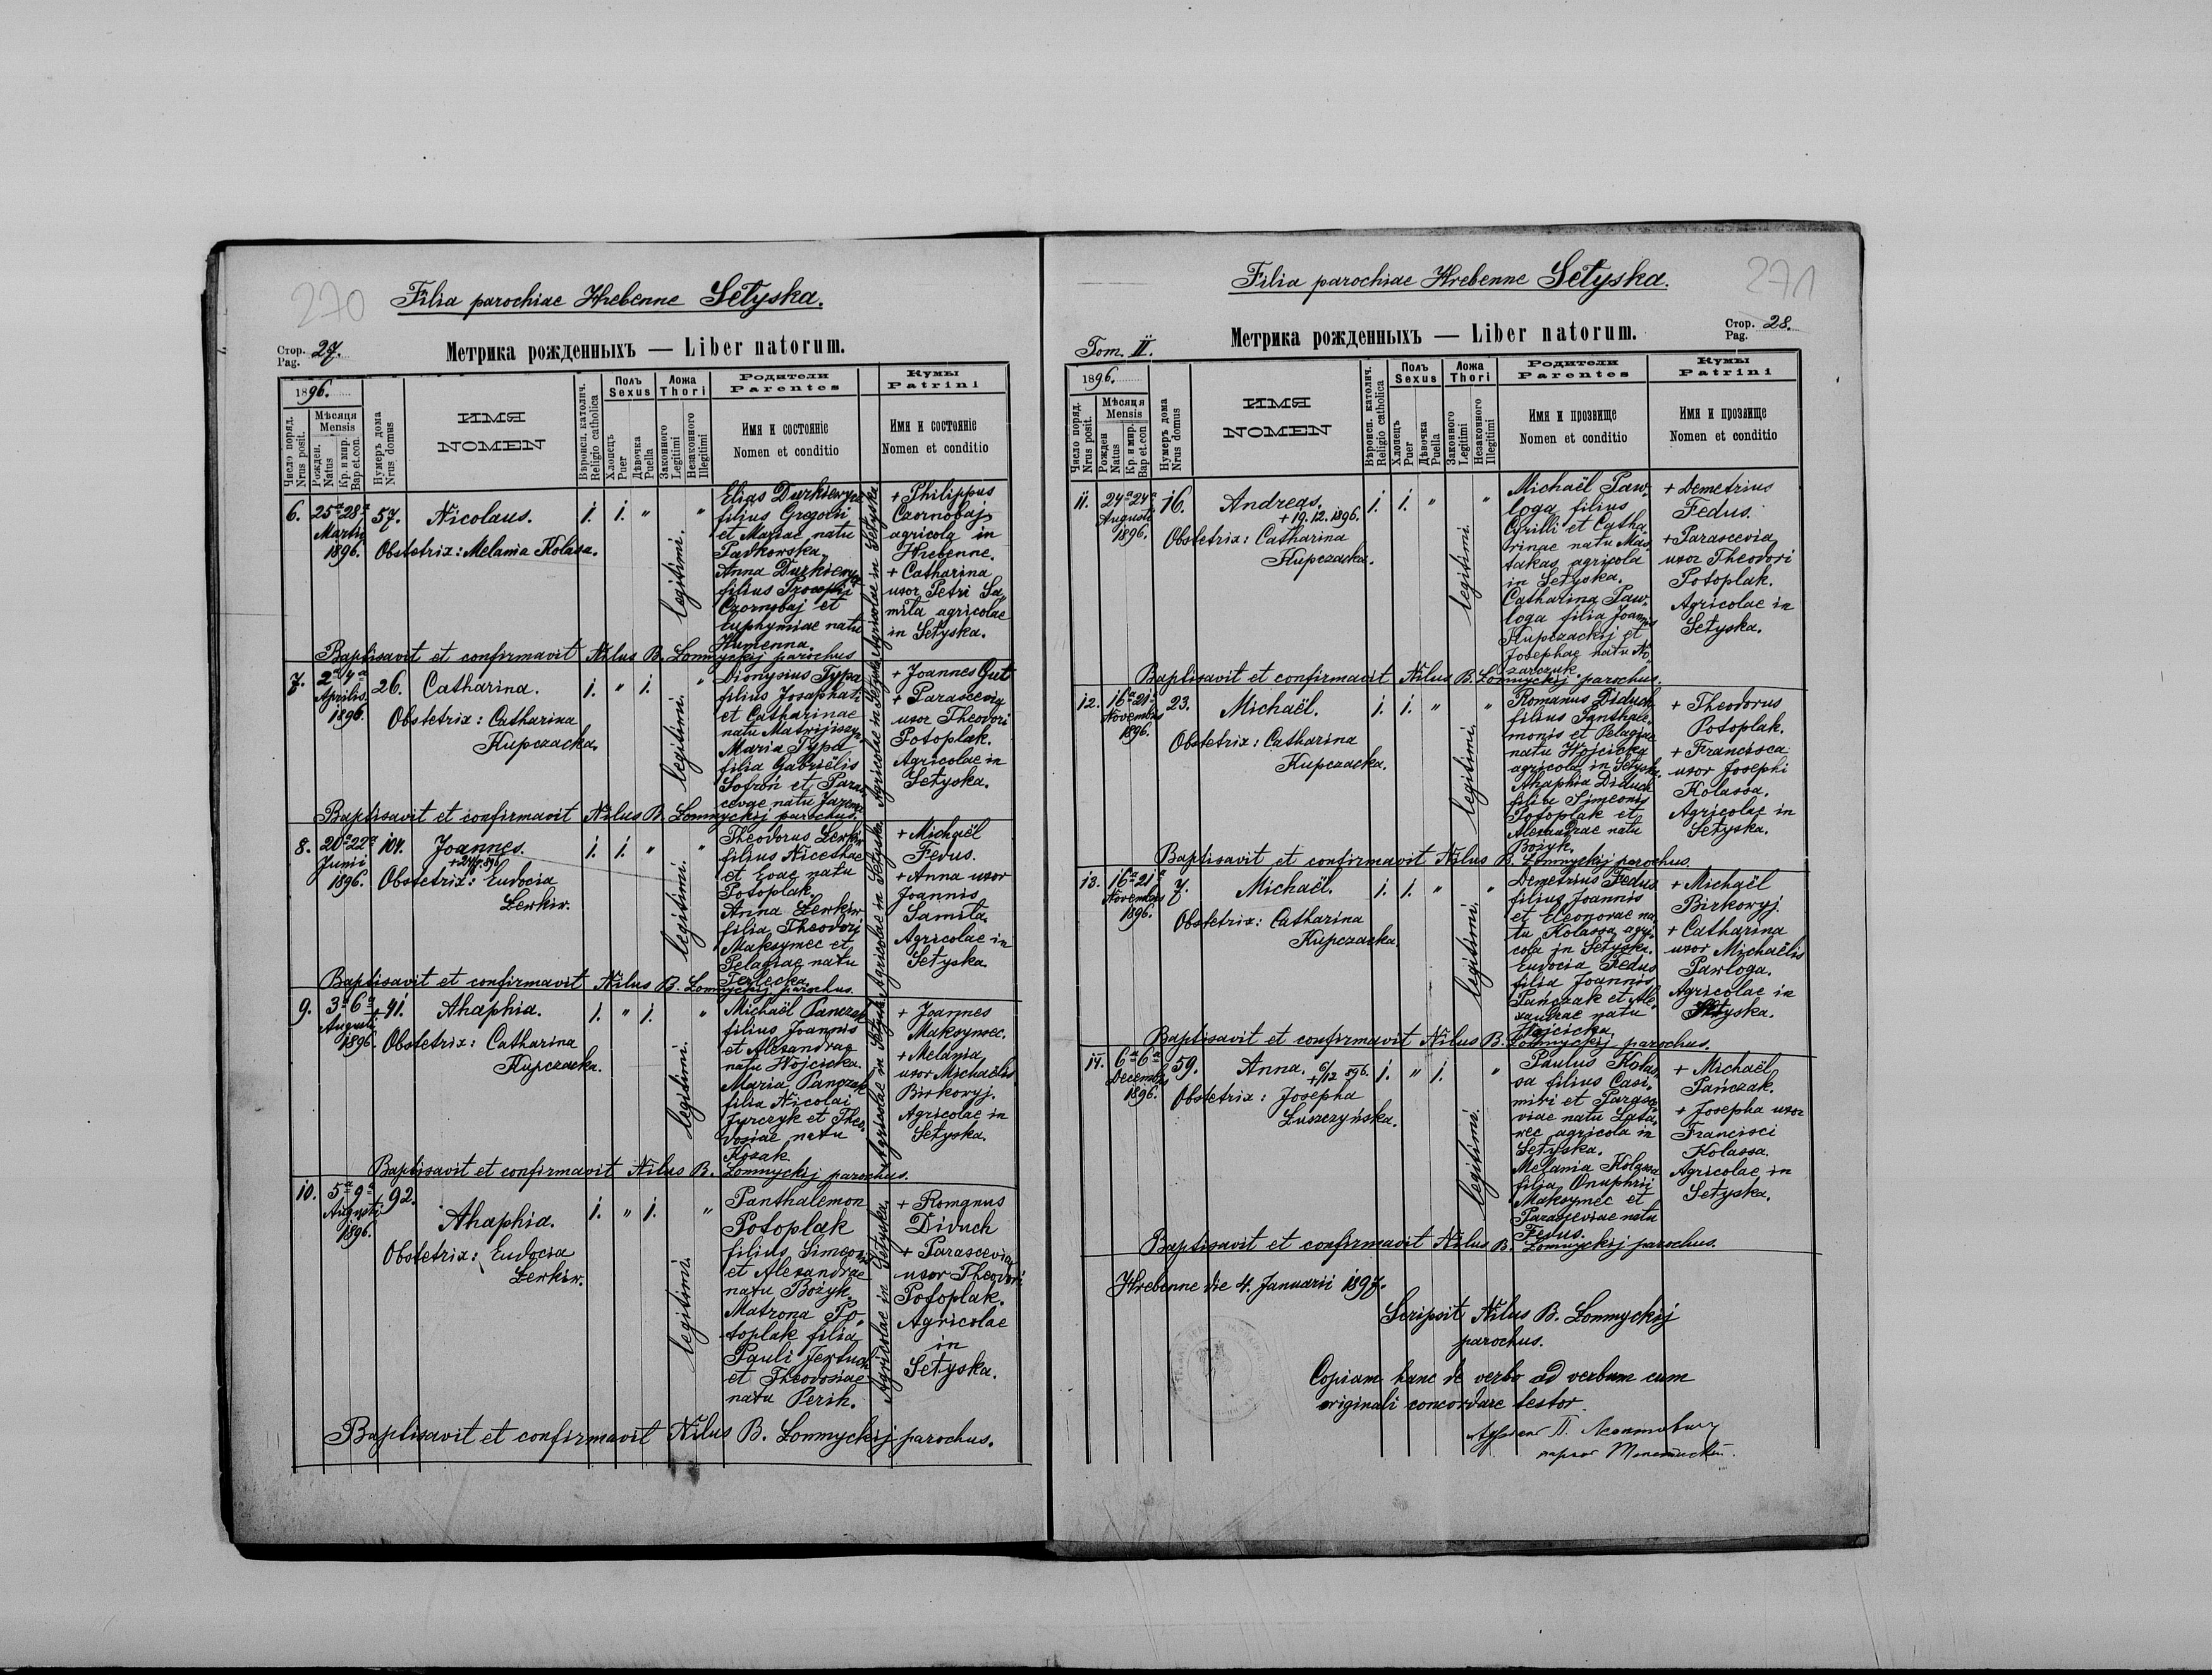 270
Filia parochiae Hrebenne Setyska.
Стор. Pag. 27.
Метрика рожденныхъ — Liber natorum.
1896.
Число поряд. Nrus posit.
Мѣсяця Mensis
Рожден. Natus
Кр. и мир. Bap et.con.
Нумеръ дома Nrus domus
ИМЯ
NOMEN
Вѣроисп. католич. Religio catholica
Полъ Sexus
Хлопецъ Puer
Дѣвочка Puella
Ложа Thori
Законного Legitimi
Незаконного Illegitimi
Родители Parentes
Имя и состоянiе
Nomen et conditio
Кумы Patrini
Имя и состоянiе
Nomen et conditio
6. 25a 28a Martii 1896. 57. Nicolaus. 1. 1. " legitimi. "
Obstetrix: Melania Kolassa.
filius Gregorii
et Mariae natu
Anna
filius
Czornobaj et
Euphymiae natu
Humenna.
Agricolae in Setyska
+ Philippus
Czornobaj
agricola in
Hrebenne.
+ Catharina
uxor Petri Sa„
mita agricolae
in Setyska.
Baptisavit et confirmavit Nilus B. Lomnyckij parochus
7. 2a 4a Aprilis 1896. 26. Catharina. 1. " 1. legitimi. "
Obstetrix: Catharina
Kupczacka.
Dionysius Typa
filius Josaphati
et Catharinae
natu
Maria Typa
filia Gabriëlis
Sofron et Paras„
cevae natu
Agricolae in Setyska
+ Joannes Gut
+ Parascevia
uxor Theodori
Potoplak.
Agricolae in
Setyska.
Baptisavit et confirmavit Nilus B. Lomnyckij parochus.
8. 20a 22a Junii 1896. 104. Joannes. 1. 1. " legitimi. "
Obstetrix: Eudocia
Lerkiw.
Theodorus Lerkiw
filius Nicethae
et Evae natu
Potoplak.
Anna Lerkiw
filia Theodori
Maksymec et
Pelagiae natu
Terlecka.
Agricolae in Setyska.
+ Michaël
Fedus.
+ Anna uxor
Joannis
Samita.
Agricolae in
Setyska.
Baptisavit et confirmavit Nilus B. Lomnyckij parochus.
9. 3a 6a Augusti 1896. 41. Ahaphia. 1. " 1. legitimi. "
Obstetrix: Catharina
Kupczacka.
Michaël Panczak
filius Joannis
et Alexandrae
natu Wojcicka.
Maria Panczak
filia Nicolai
Jurczyk et Theo„
dosiae natu
Kozak.
Agricolae in Setyska
+ Joannes
Maksymec.
+ Melania
uxor Michaëlis
Birkowyj.
Agricolae in
Setyska.
Baptisavit et confirmavit Nilus B. Lomnyckij parochus.
10. 5a 9a Augusti 1896. 92. Ahaphia. 1. " 1. legitimi. "
Obstetrix: Eudocia
Lerkiw.
Panthalemon
Potoplak
filius Simeonis
et Alexandrae
natu Bożyk.
Matrona Po„
toplak filia
Pauli
et Theodosiae
natu Perih.
Agricolae in Setyska.
+ Romanus
Diduch
+ Parascevia
uxor Theodori
Potoplak.
Agricolae
in
Setyska.
Baptisavit et confirmavit Nilus B. Lomnyckij parochus.
271
Filia parochiae Hrebenne Setyska.
Tom. II.
Метрика рожденныхъ — Liber natorum.
Стор. Pag. 28.
1896.
Число поряд. Nrus posit.
Мѣсяця Mensis
Рожден Natus
Кр. и мир. Bap et.con
Нумеръ дома Nrus domus
ИМЯ
NOMEN
Вѣроисп. католич. Religio catholica
Полъ Sexus
Хлопецъ Puer
Дѣвочка Puella
Ложа Thori
Законного Legitimi
Незаконного Illegitimi
Родители Parentes
Имя и прозвище
Nomen et conditio
Кумы Patrini
Имя и прозвище
Nomen et conditio
11. 24a 24a Augusti 1896. 16. Andreas. 1. 1. " legitimi. "
+ 19. 12. 1896.
Obstetrix: Catharina
Kupczacka.
Michaël Paw„
loga filius
Cyrilli et Catha„
rinae natu Mas„
takas agricola
in Setyska.
Catharina Paw„
loga filia Joannis
Kupczackij et
Josephae natu Na„
zarczuk.
+ Demetrius
Fedus.
+ Parascevia
uxor Theodori
Potoplak.
Agricolae in
Setyska.
Baptisavit et confirmavit Nilus B. Lomnyckij parochus.
12. 16a 21a Novembris 1896. 23. Michaël. 1. 1. " legitimi. "
Obstetrix: Catharina
Kupczacka.
Romanus Diduch
filius Panthale„
monis et Pelagiae
natu Wojcicka
agricola in Setyska.
Ahaphia Diduch
filia Simeonis
Potoplak et
Alexandrae natu
Bożyk.
+ Theodorus
Potoplak.
+ Francisca
uxor Josephi
Kolassa.
Agricolae in
Setyska.
Baptisavit et confirmavit Nilus B. Lomnyckij parochus.
13. 16a 21a Novembris 1896. 7. Michaël. 1. 1. " legitimi. "
Obstetrix: Catharina
Kupczacka.
Demetrius Fedus
filius Joannis
et Eleonorae na„
tu Kolassa agri„
cola in Setyska.
Eudocia Fedus
filia Joannis
Pańczak et Ale„
xandrae natu
Wojcicka.
+ Michaël
Birkowyj.
+ Catharina
uxor Michaëlis
Pawloga.
Agricolae in
Setyska.
Baptisavit et confirmavit Nilus B. Lomnyckij parochus.
14. 6a 6a Decembris 1896. 59. Anna. + 6/12 896. 1. " 1. legitimi. "
Obstetrix: Josepha
Luszczyńska.
Paulus Kolas„
sa filius Casi„
miri et Parasce„
viae natu
agricola in
Setyska.
Melania Kolassa
filia Onuphrii
Maksymec et
Parasceviae natu
Fedus.
+ Michaël
Pańczak.
+ Josepha uxor
Francisci
Kolassa.
Agricolae in
Setyska.
Baptisavit et confirmavit Nilus B. Lomnyckij parochus.
Hrebenne die 4. Januarii 1897.
Scripsit Nilus B. Lomnyckij
parochus.
Copiam hanc de verbo ad verbum cum
originali concordare testor.